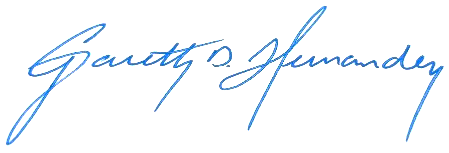 Garett D. Hernandez